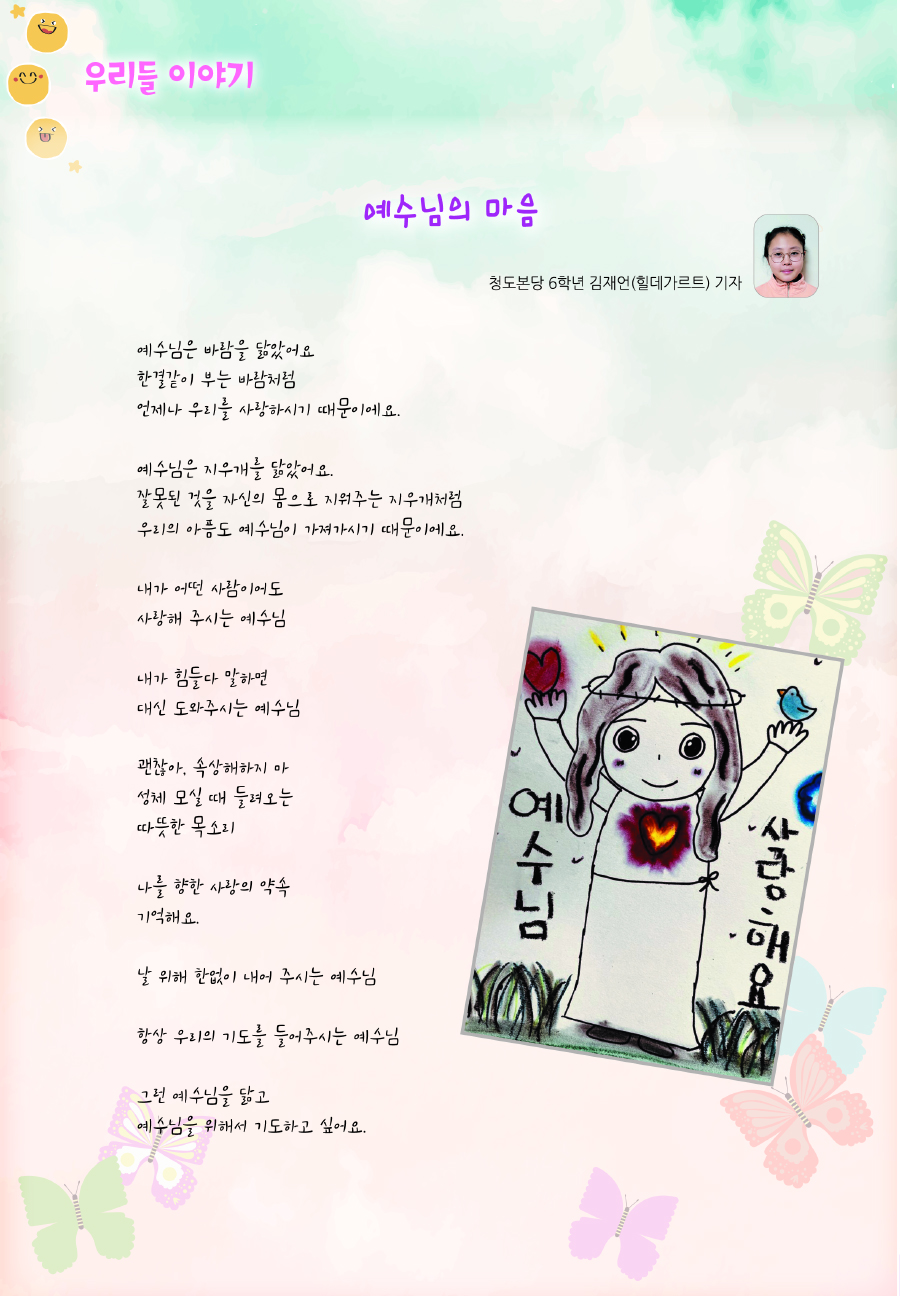 우리들 이야기
예수님의 마음
청도본당 6학년 김재언(힐데가르트) 기자
예수님은 바람을 닮았어요
한결같이 부는 바람처럼
언제나 우리를 사랑하시기 때문이에요.
예수님은 지우개를 닮았어요.
잘못된 것을 자신의 몸으로 지워주는 지우개처럼
우리의 아픔도 예수님이 가져가시기 때문이에요.
내가 어떤 사람이어도
사랑해 주시는 예수님
내가 힘들다 말하면
대신 도와주시는 예수님
괜찮아, 속상해하지 마
성체 모실 때 들려오는
따뜻한 목소리
나를 향한 사랑의 약속
기억해요.
날 위해 한없이 내어 주시는 예수님
항상 우리의 기도를 들어주시는 예수님
그런 예수님을 닮고
예수님을 위해서 기도하고 싶어요.
예수님
사랑해요